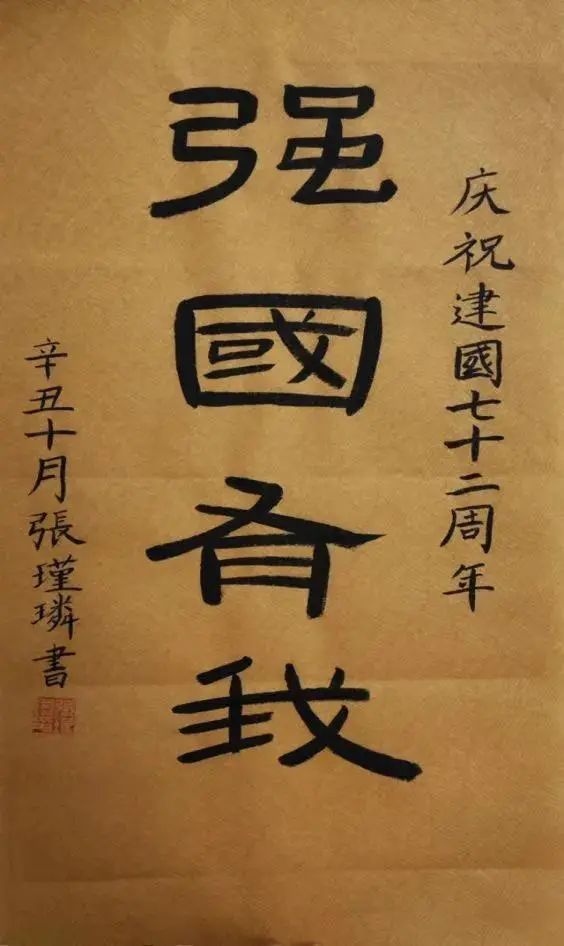 庆祝建國七十二周年
强國有我
辛丑十月張瑾璘書